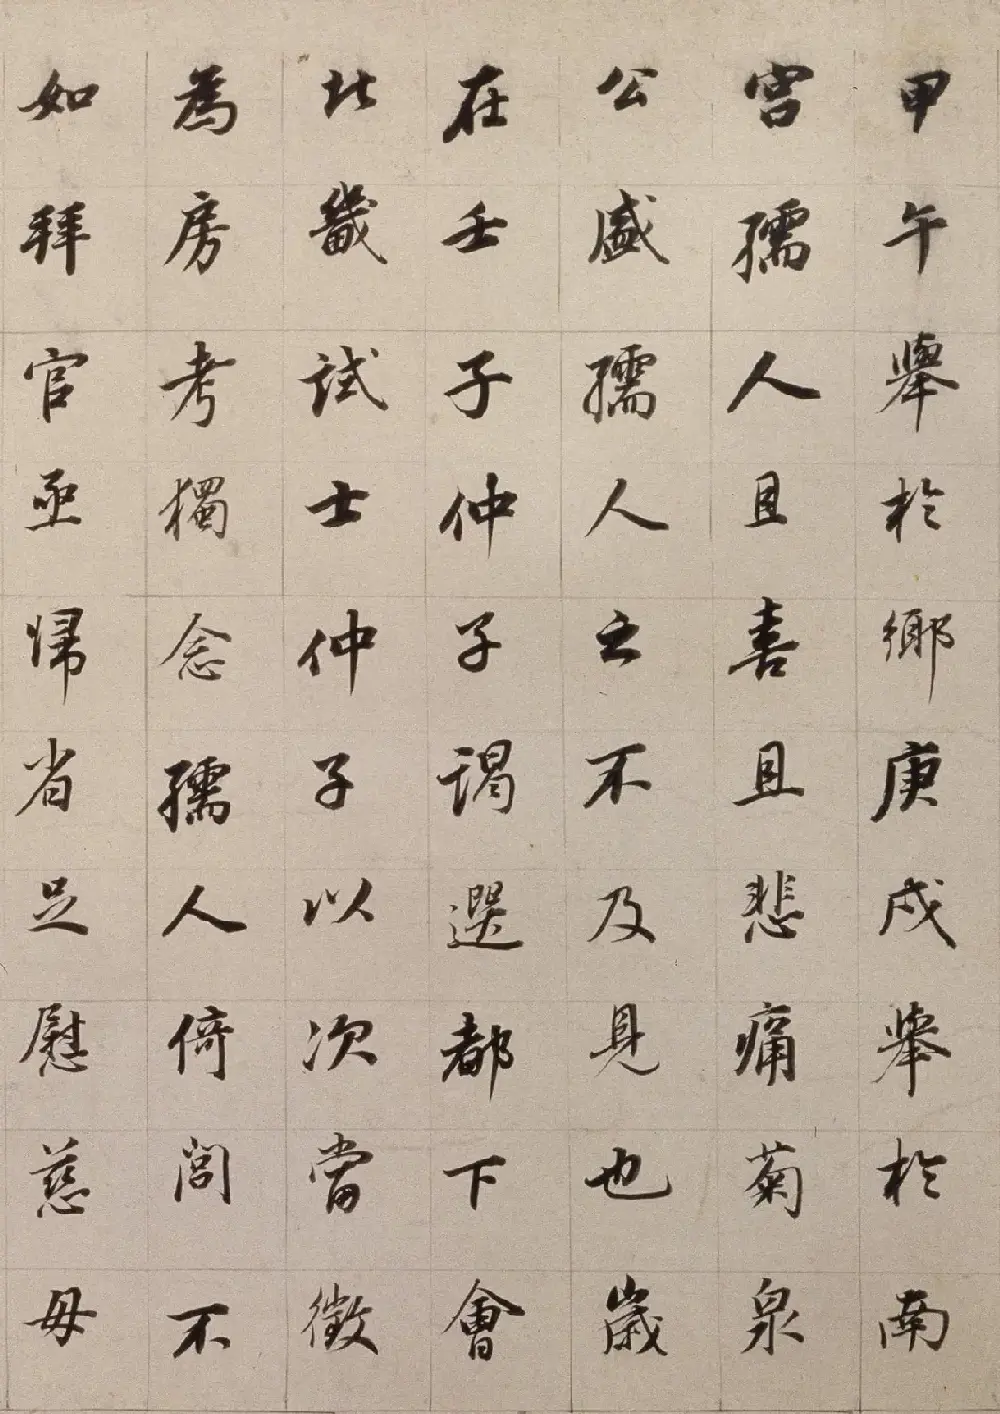 甲午舉於鄉庚戌舉於南
宮孺人且喜且悲痛菊泉
公盛孺人之不及見也歲
在壬子仲子謁選都下會
北畿試士仲子以次當徵
為房考獨念孺人倚閭不
如拜官亟歸省足慰慈母